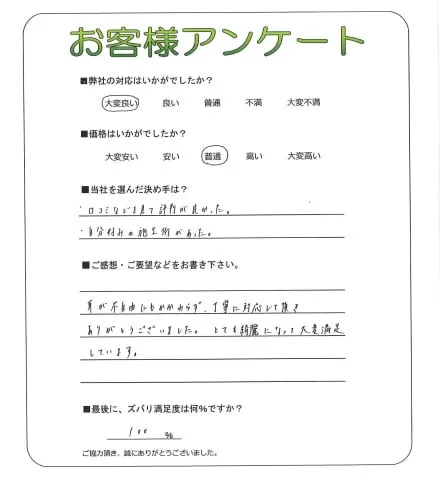 お客様アンケート
■弊社の対応はいかがでしたか？
大変良い 良い 普通 不満 大変不満
■価格はいかがでしたか？
大変安い 安い 普通 高い 大変高い
■当社を選んだ決め手は？
・口コミなどを見て評判が良かった。
・自分好みの施工術があった。
■ご感想・ご要望などをお書き下さい。
耳が不自由にもかかわらず、丁寧に対応して頂き
ありがとうございました。とても綺麗になって大変満足
しています。
■最後に、ズバリ満足度は何％ですか？
100 ％
ご協力頂き、誠にありがとうございました。